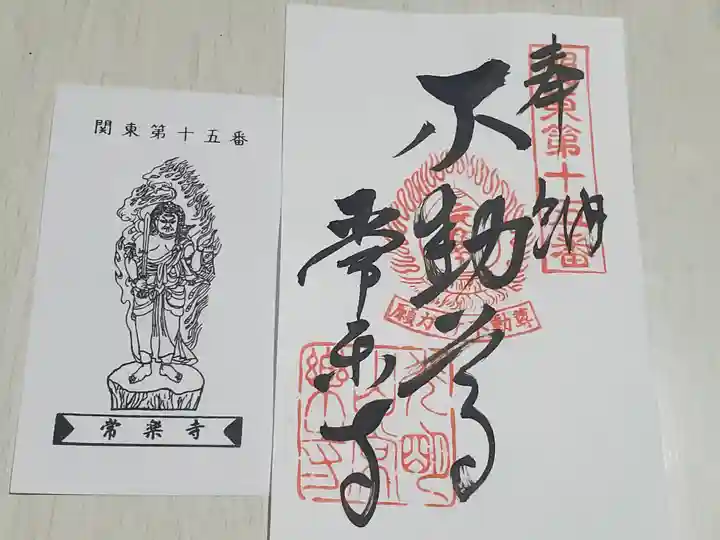 関東第十五番
常楽寺
奉納
関東第十五番
不動尊
常楽寺
願力
尊動不